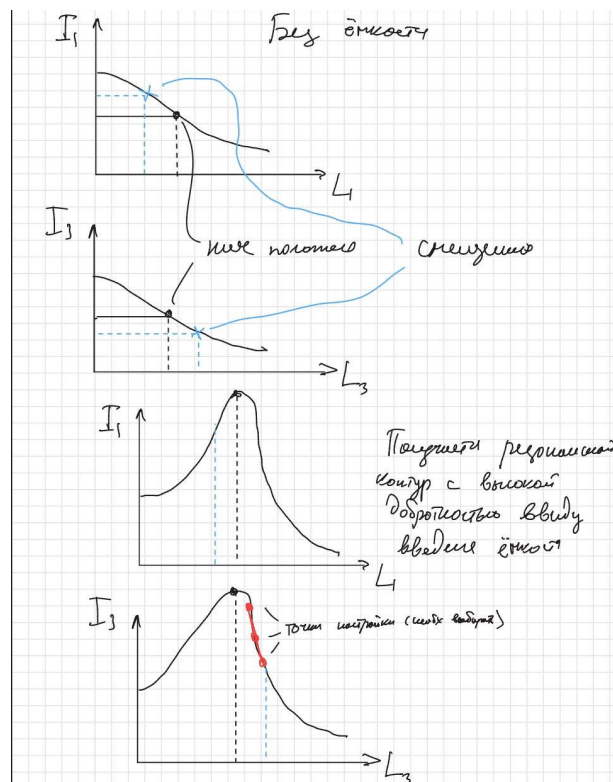 I₁
Без ёмкости
L₁
I₃
нач положение
смещение
L₃
I₁
Получается резонансный
контур с высокой
добротностью ввиду
введения ёмкости
L₁
I₃
точки настройки
L₃